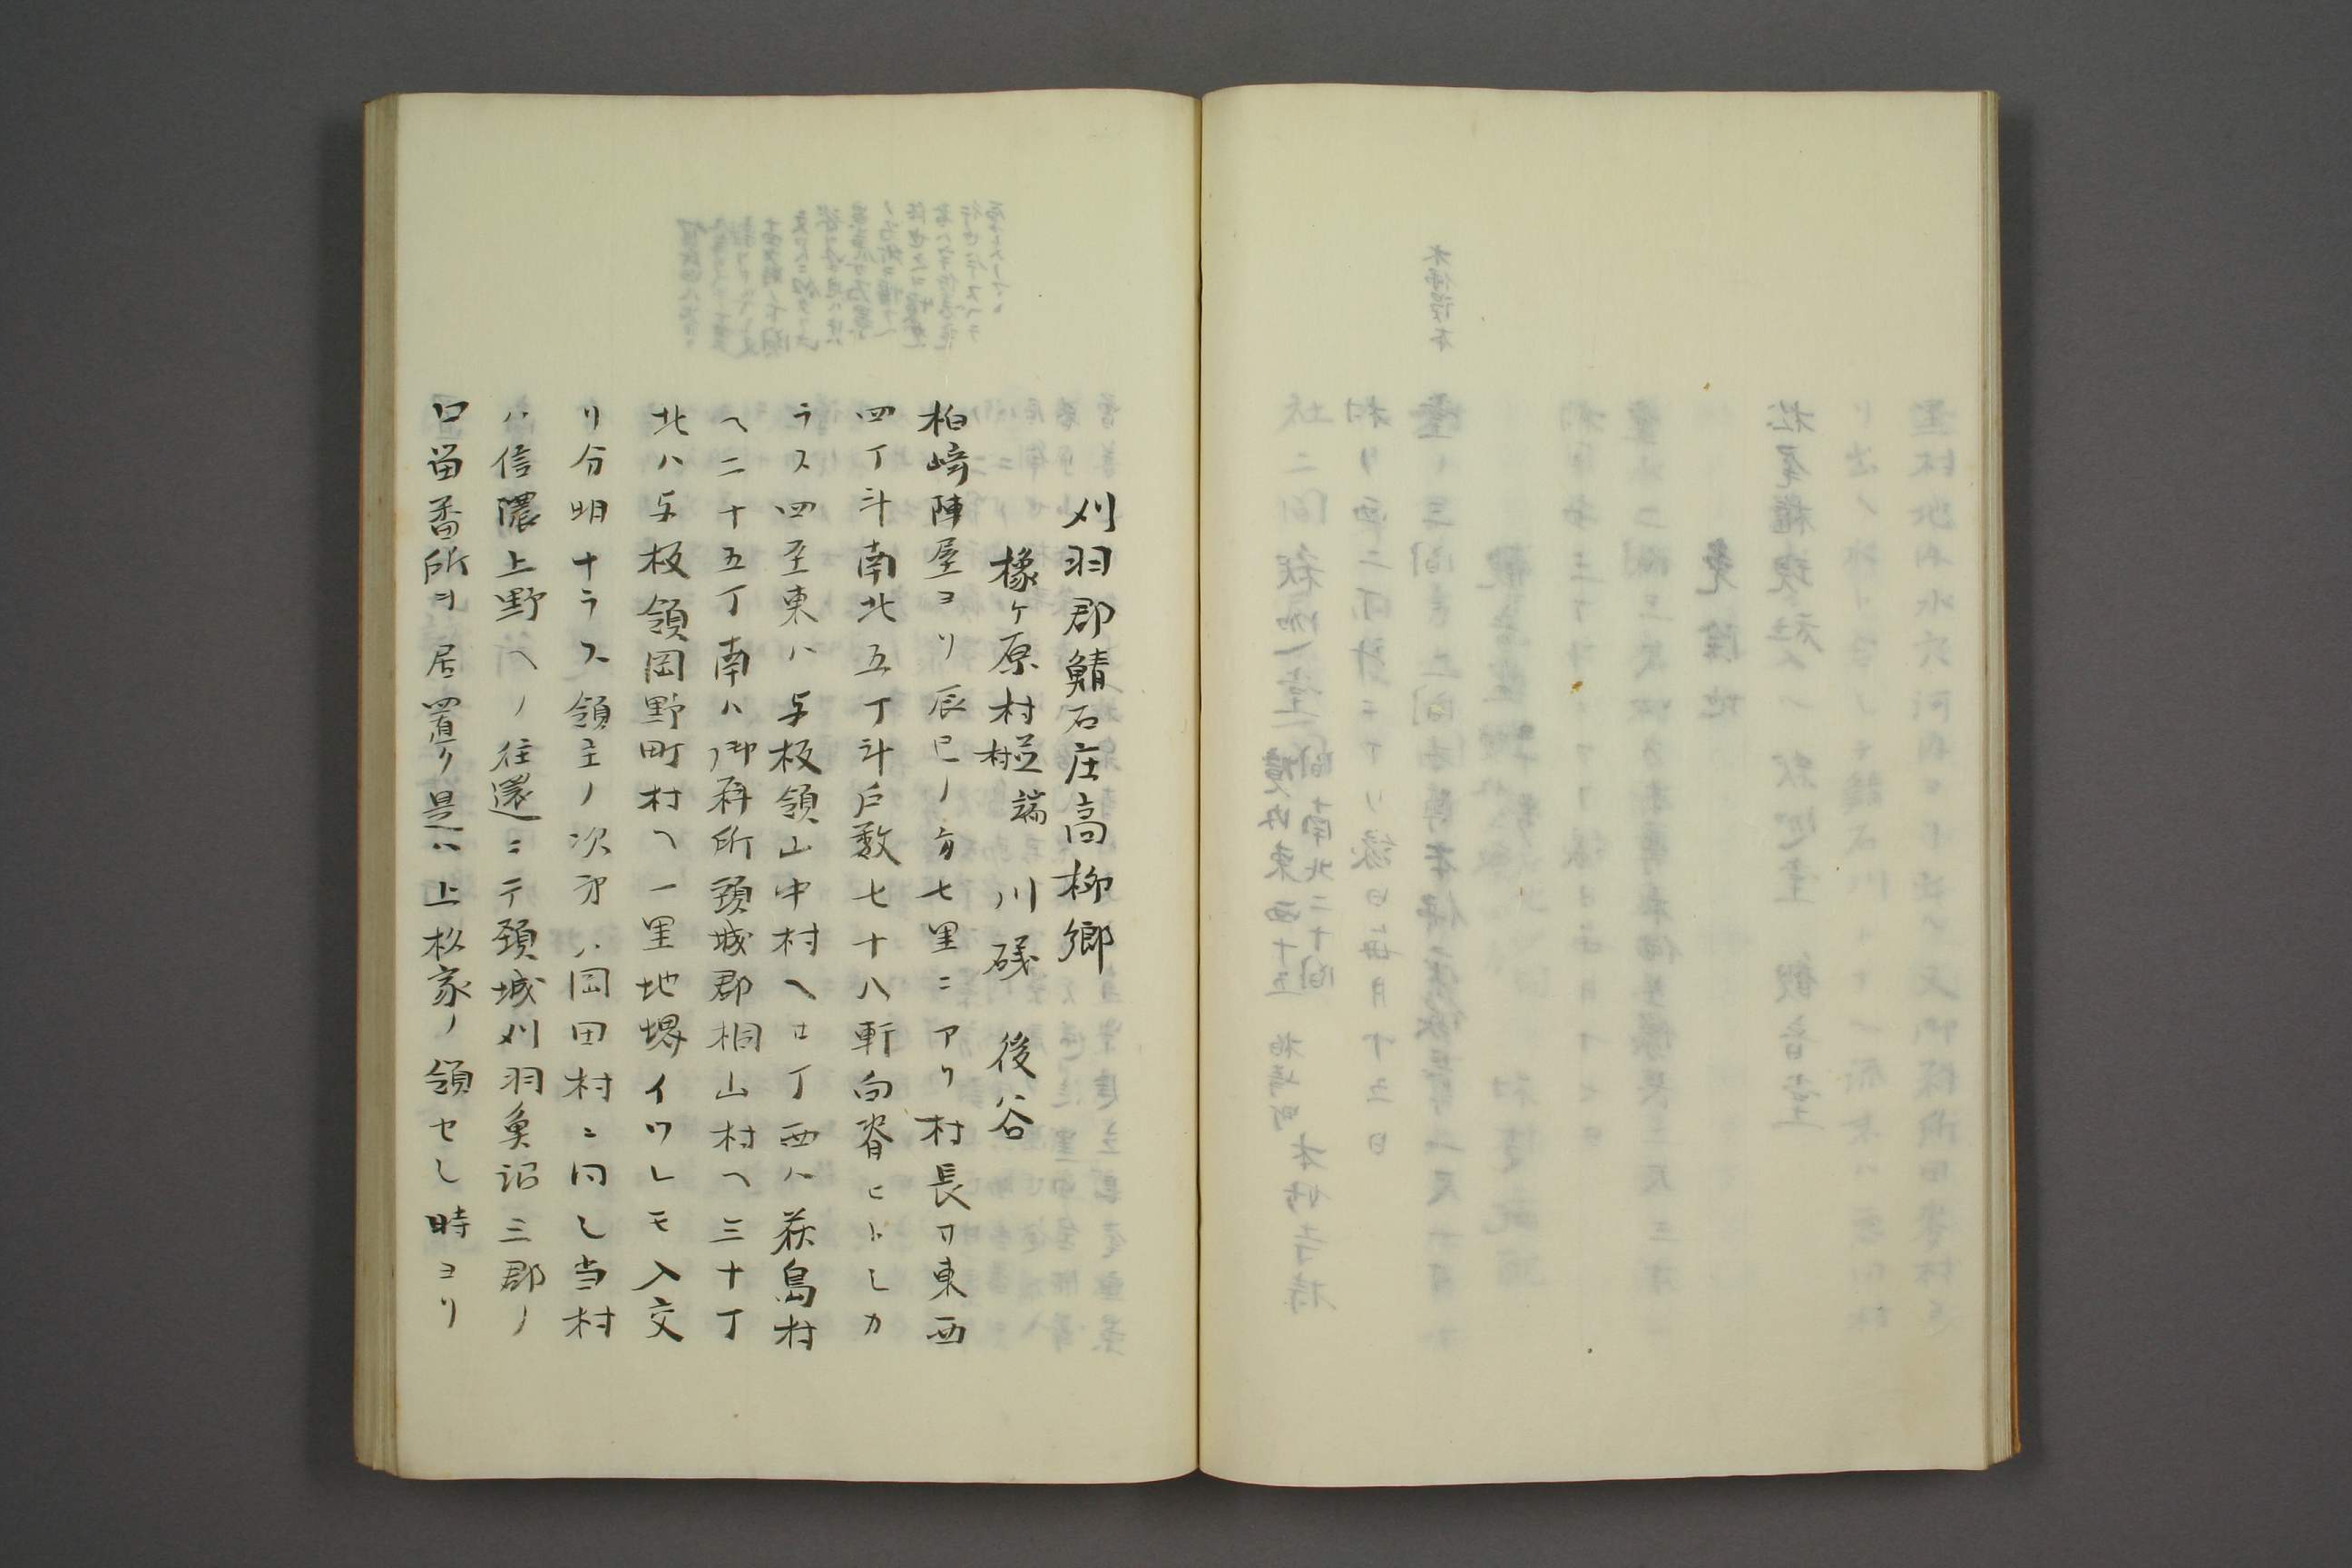 刈羽郡鯖石庄高柳郷
橡ケ原村並端村 川磯 後谷
柏崎陣屋ヨリ辰巳ノ方七里ニアリ村長サ東西
四丁斗南北五丁斗戸数七十八軒向脊ヒトシカ
ラス四至東ハ与板領山中村ヘロ丁西ハ荻島村
ヘ二十五丁南ハ御料所頚城郡桐山村ヘ三十丁
北ハ与板領岡野町村ヘ一里地堺イツレモ入交
リ分明ナラス領主ノ次第ハ岡田村ニ同シ当村
ハ信濃上野ヘノ往還ニテ頚城刈羽魚沼三郡ノ
口留番所ヲ居置リ是ハ上杉家ノ領セシ時ヨリ